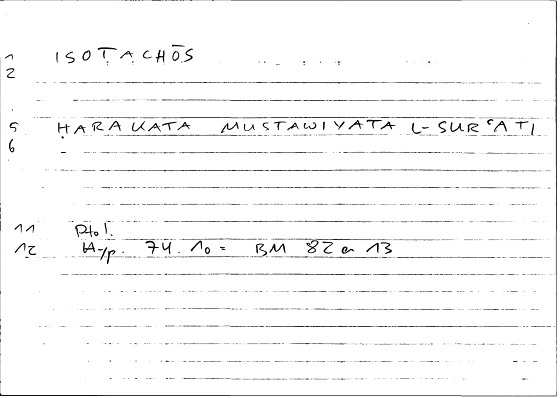 1 ISOTACHŌS
2
5 ḤARAKATA MUSTAWIYATA L-SURʿATI
6 -
11 Ptol.
12 Hyp. 74.10 = BM 82 a 13